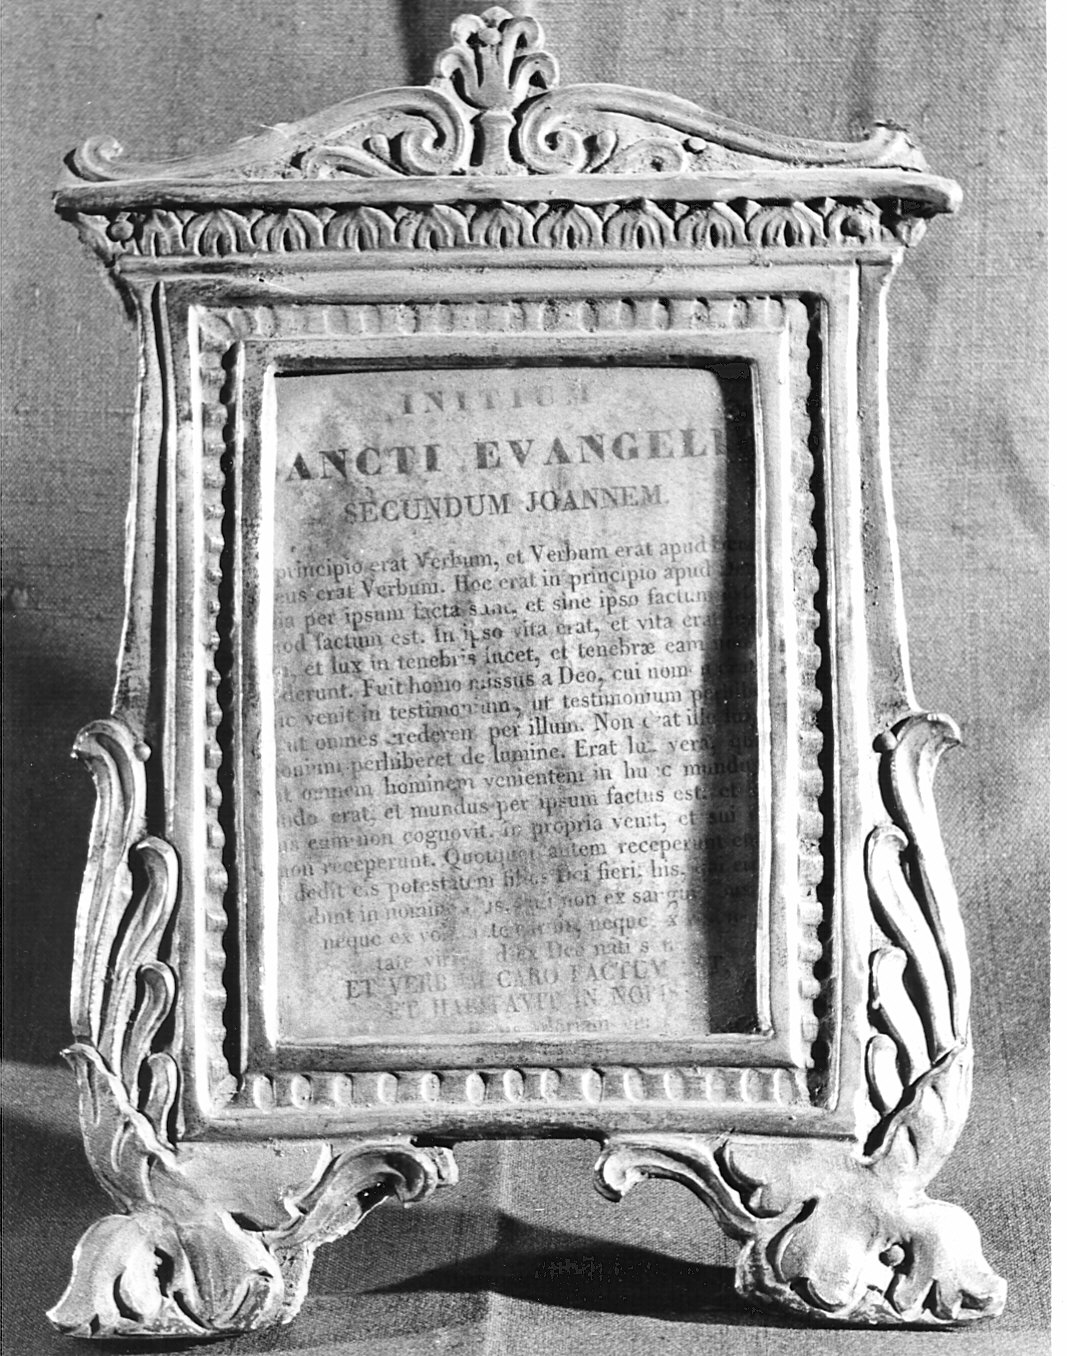 INITIUM
ANCTI EVANGELI
SECUNDUM JOANNEM.
principio erat Verbum, et Verbum erat apud
eus erat Verbum. Hoc erat in principio apud
ia per ipsum facta sunt, et sine ipso factum
od factum est. In ipso vita erat, et vita erat
et lux in tenebris lucet, et tenebræ eam
derunt. Fuit homo missus a Deo, cui nomen erat
ic venit in testimonium, ut testimonium
ut omnes crederent per illum. Non erat ille lux
onium perhiberet de lumine. Erat lux vera,
t omnem hominem venientem in hunc mundum
ndo erat, et mundus per ipsum factus est, et
us eum non cognovit. in propria venit, et sui
non receperunt. Quotquot autem receperunt
dedit eis potestatem filios Dei fieri, his, qui
dunt in nomine ejus, qui non ex sanguinibus
neque ex voluntate carnis, neque ex
tate viri, sed ex Deo nati sunt
ET VERBUM CARO FACTUM EST,
ET HABITAVIT IN NOBIS